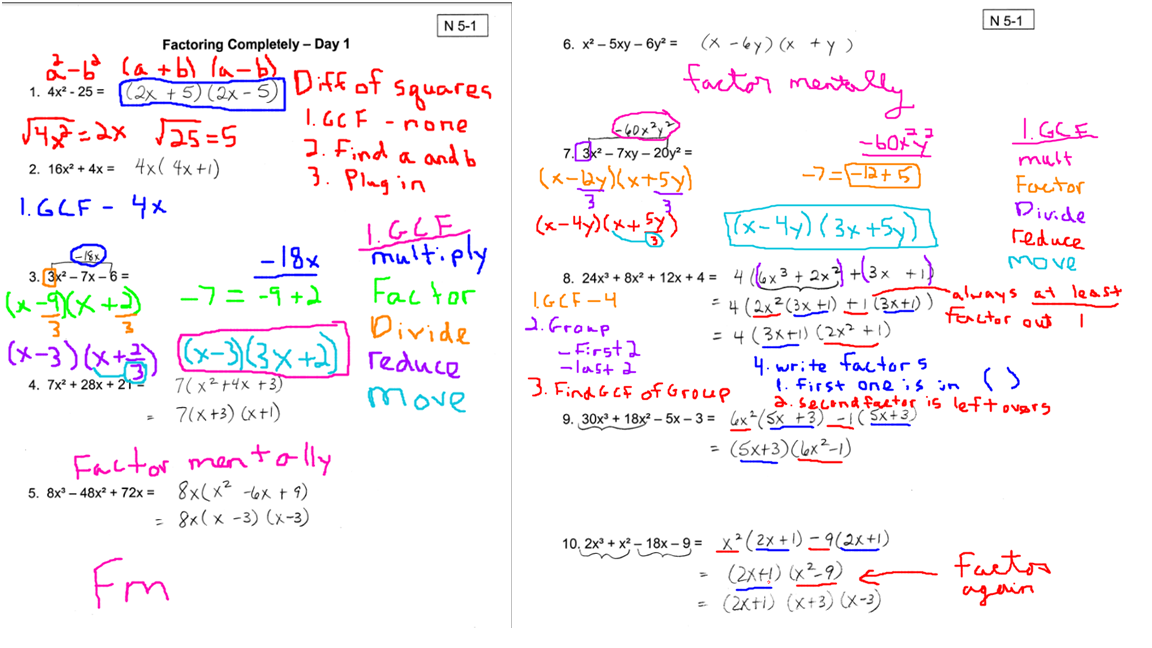 N 5-1
Factoring Completely – Day 1
a² - b² (a + b) (a - b)
1. 4x² - 25 = (2x + 5)(2x - 5)
Diff of squares
1. GCF - none
2. Find a and b
3. Plug in
√4x² = 2x √25 = 5
2. 16x² + 4x = 4x(4x+1)
1. GCF - 4x
-18x
3. 3x² – 7x – 6 =
-18x
(x-9)(x+2)
3 3
-7 = -9 + 2
(x-3)(x+2/3)
(x-3)(3x+2)
1. GCF
multiply
Factor
Divide
reduce
move
4. 7x² + 28x + 21 = 7(x²+4x+3)
= 7(x+3)(x+1)
Factor mentally
5. 8x³ – 48x² + 72x = 8x(x² -6x + 9)
= 8x(x -3)(x-3)
Fm
N 5-1
6. x² – 5xy – 6y² = (x -6y)(x + y)
Factor mentally
-60x²y²
7. 3x² – 7xy – 20y² =
-60x²y²
(x-12y)(x+5y)
3 3
-7 = -12 + 5
(x-4y)(x+5y/3)
(x-4y)(3x+5y)
1. GCF
mult
Factor
Divide
reduce
move
8. 24x³ + 8x² + 12x + 4 = 4(6x³ + 2x²)+(3x +1)
= 4(2x²(3x+1) +1(3x+1))
= 4(3x+1)(2x²+1)
always at least
factor out 1
1. GCF-4
2. Group
-first 2
-last 2
3. Find GCF of Group
4. write factors
1. first one is in ( )
2. second factor is left overs
9. 30x³ + 18x² – 5x – 3 = 6x²(5x +3) -1(5x+3)
= (5x+3)(6x²-1)
10. 2x³ + x² – 18x – 9 = x²(2x+1) -9(2x+1)
= (2x+1)(x²-9)
Factor
again
= (2x+1)(x+3)(x-3)